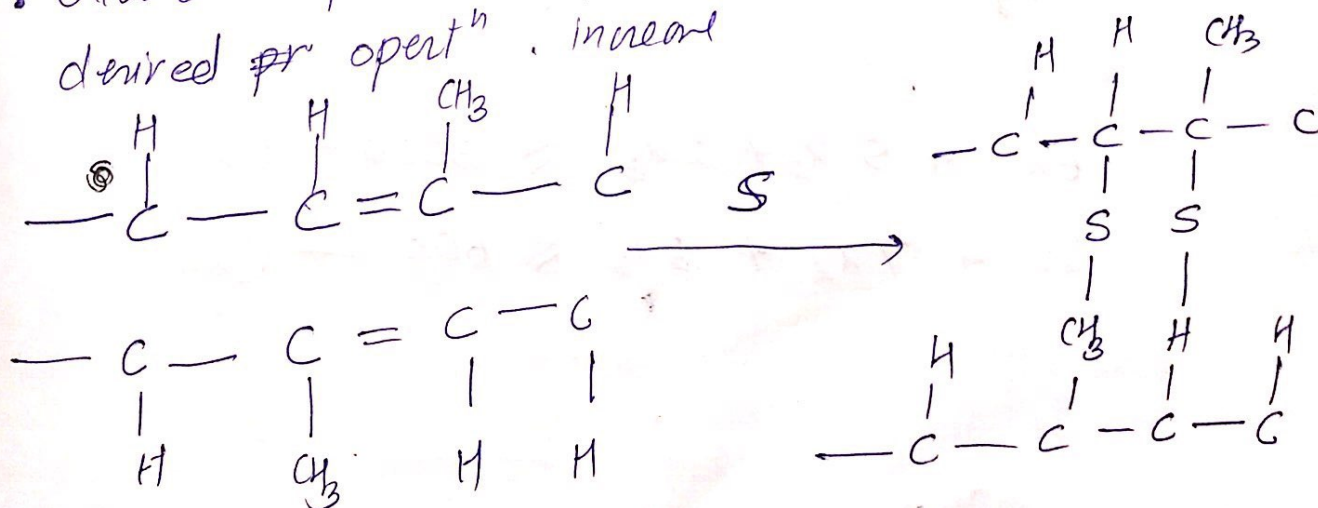 desired pr opertⁿ . increase
H H CH3 H
— C — C = C — C
S
— C — C = C — C
H CH3 H H
H H CH3
— C — C — C — C
S S
H CH3 H H
— C — C — C — C